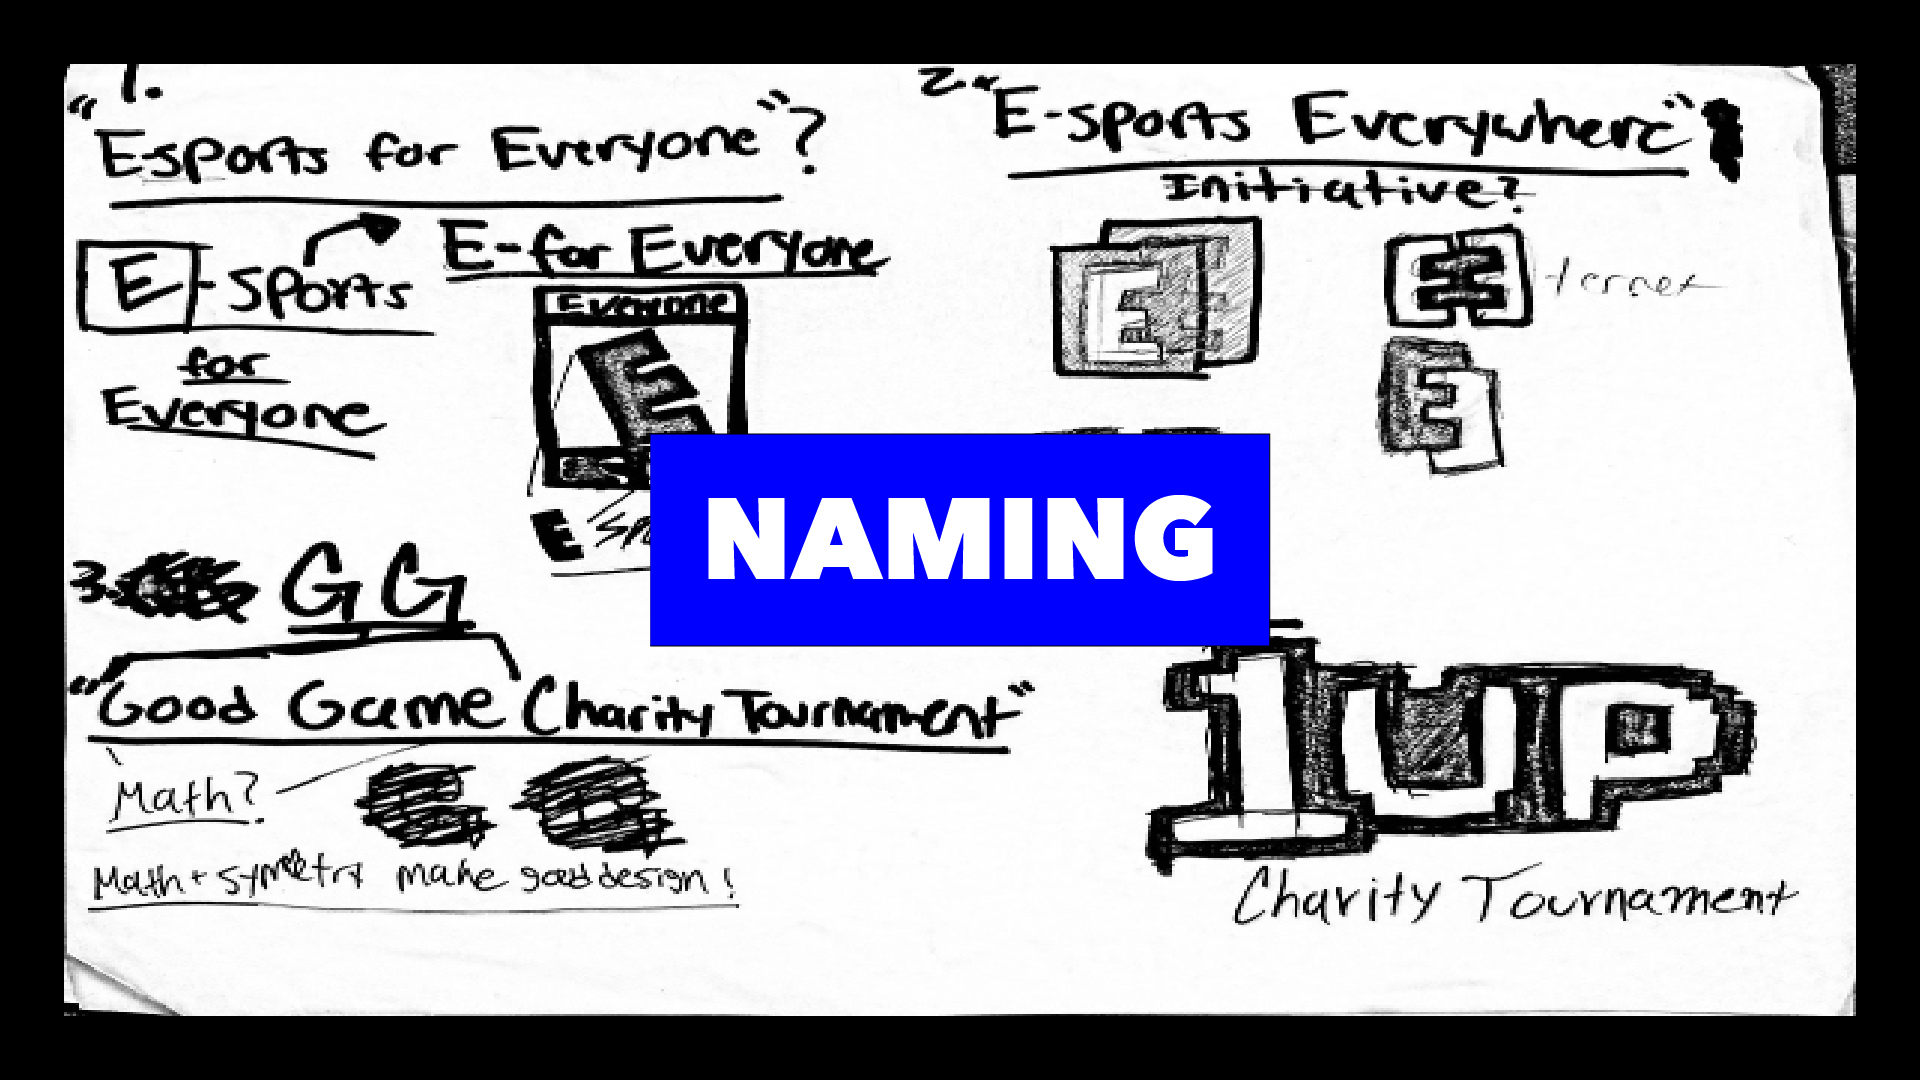 1.
"Esports for Everyone"?
E-sports
for
Everyone
E-for Everyone
Everyone
E
E
2. "E-sports Everywhere"
Initiative?
E E
E
NAMING
3. GG
"Good Game Charity Tournament"
Math?
Math + symmetry make good design!
1UP
Charity Tournament